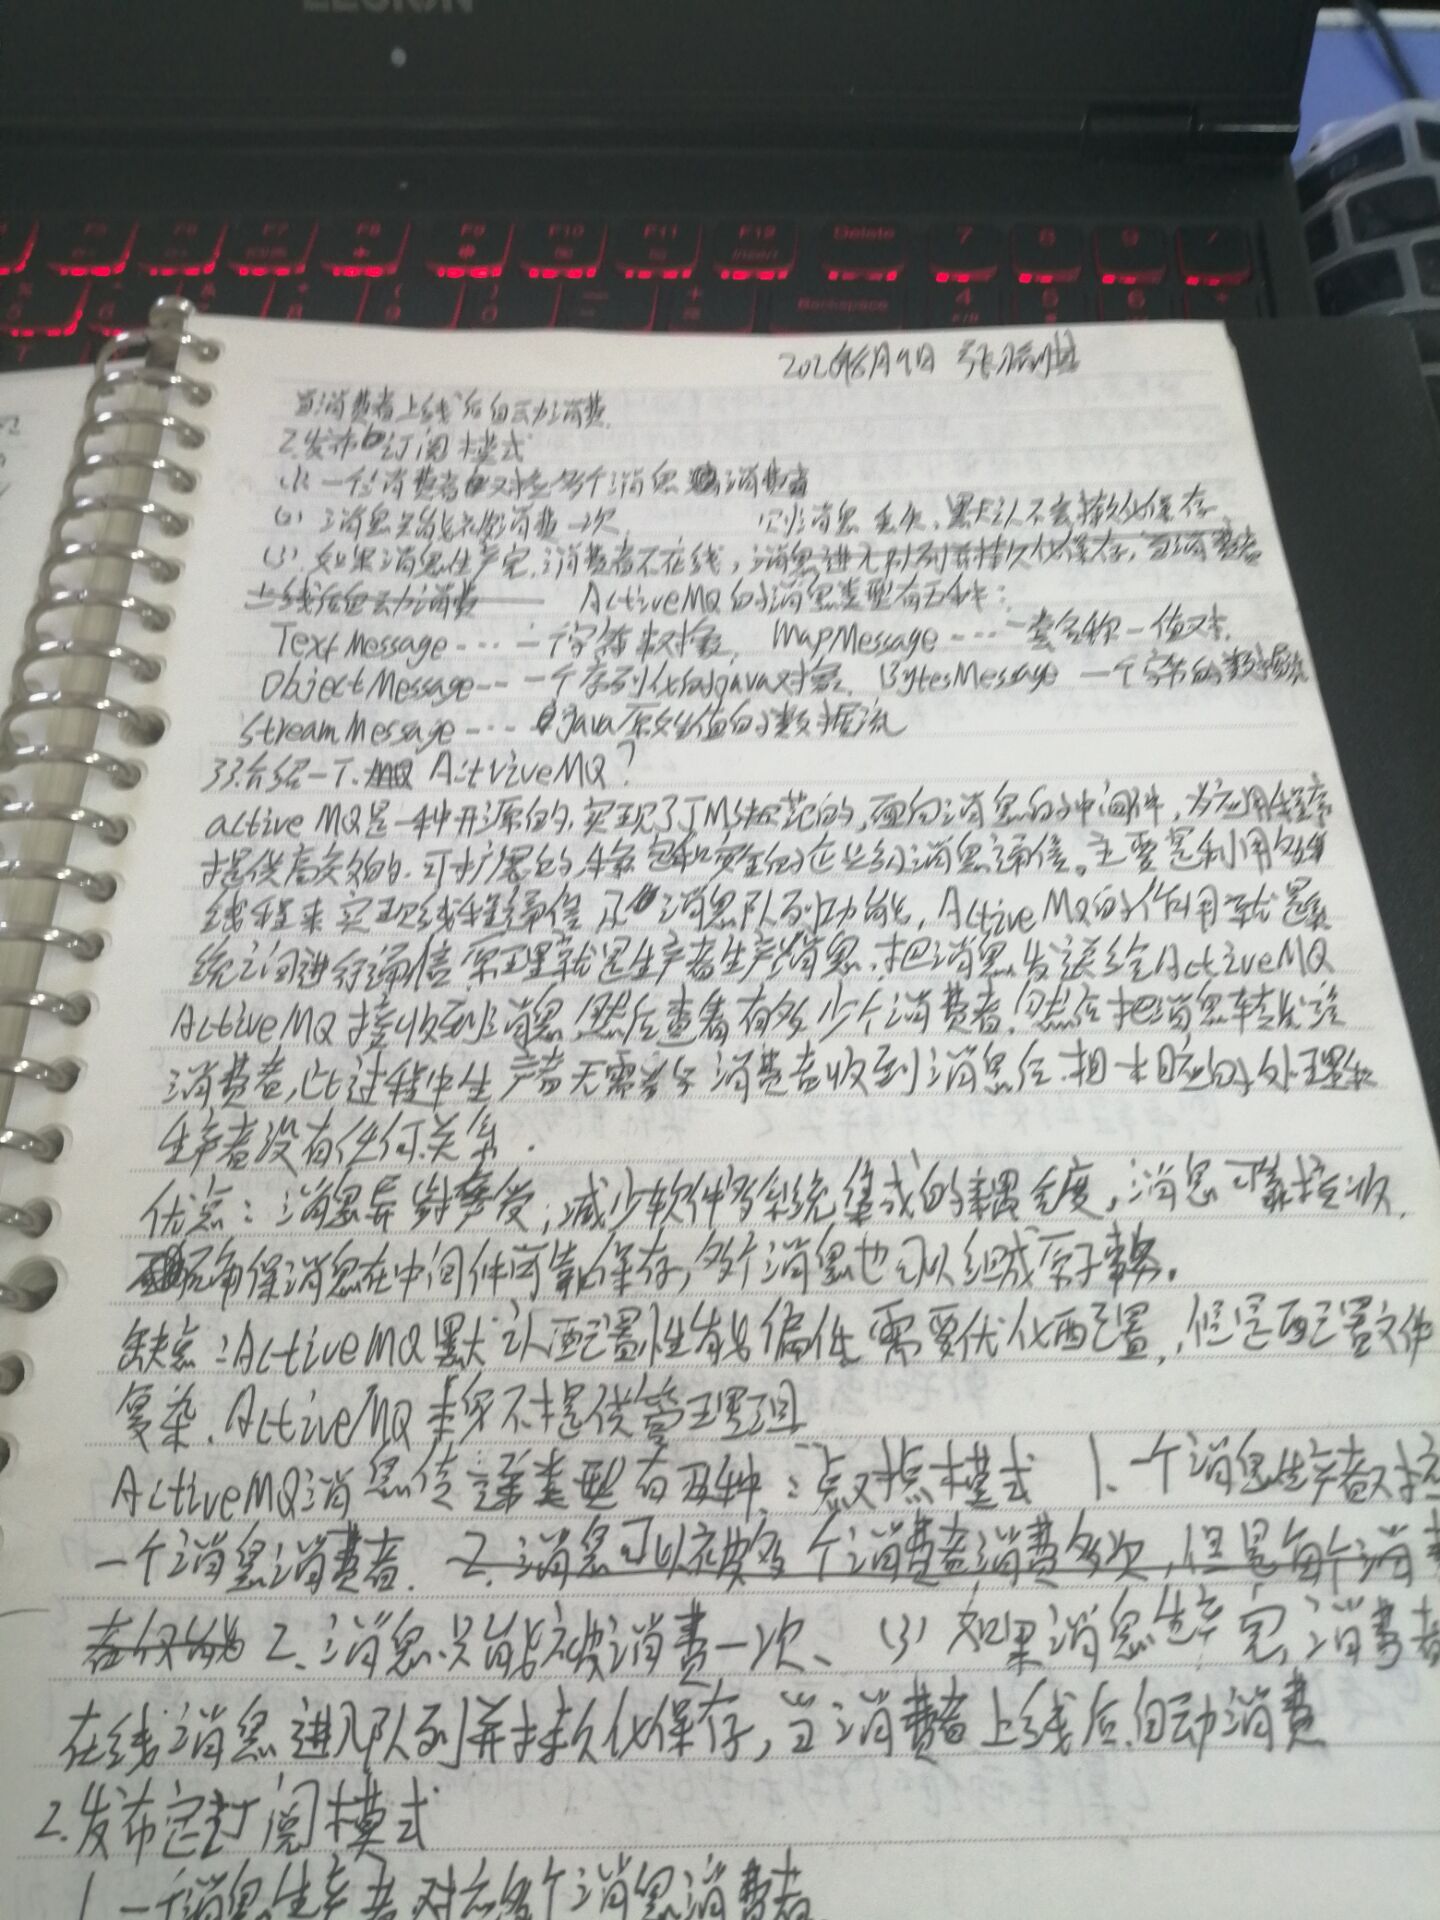 LEGION
F5 F6 F7 F8 F9 F10 F11 F12 Delete 7 8 9 /
Insert
Backspace 4 5 6
2020年8月9日
当消费者上线后自动消费.
2.发布订阅模式
(1) 一个消费者对应多个消息消费者
(2) 消息只能被消费一次 消息丢失,默认不会持久化保存
(3).如果消息生产完,消费者不在线,消息进入队列并持久化保存,当消费者
上线后自动消费 ActiveMQ的消息类型有五种:
TextMessage---一个字符串对象, MapMessage ---一套名称一值对.
ObjectMessage--一个序列化的java对象. BytesMessage 一个字节的数据流
StreamMessage---Java原始值的数据流
33.介绍一下.MQ ActiveMQ?
activeMQ是一种开源的,实现了JMS规范的,面向消息的中间件,为应用程序
提供高效的.可扩展的.稳定和安全的企业级消息通信。主要是利用多
线程来实现线程通信 消息队列功能, ActiveMQ的作用就是系
统之间进行通信,原理就是生产者生产消息,把消息发送给ActiveMQ
ActiveMQ接收到消息,然后查看有多少个消费者,然后把消息转发给
消费者,此过程中生产者无需 消费者收到消息后.相对应的处理和
生产者没有任何关系.
优点:消息异步 ,减少软件多系统集成的耦合度,消息可靠接收.
确保消息在中间件可靠保存,多个消息也可以组成原子事务.
缺点:ActiveMQ默认配置性能偏低,需要优化配置,但是配置文件
复杂.ActiveMQ本身不提供管理工具
ActiveMQ消息传递类型有两种:点对点模式 1.一个消息生产者对应
一个消息消费者. 2.消息可以被多个消费者消费多次,但是每个消
2.消息只能被消费一次、(3)如果消息生产完,消费者
在线消息进入队列并持久化保存,当消费者上线后自动消费
2.发布订阅模式
1.一个消息生产者对应多个消息消费者.